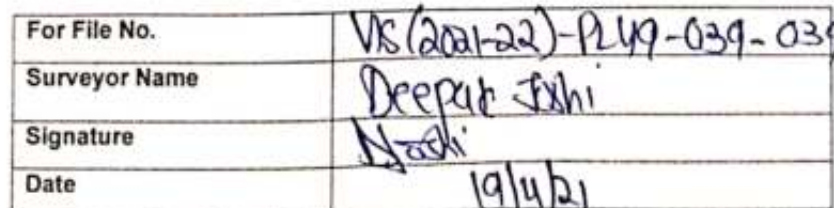 For File No. VIS(2021-22)-PL49-039-039
Surveyor Name Deepak Joshi
Signature Joshi
Date 19/4/21